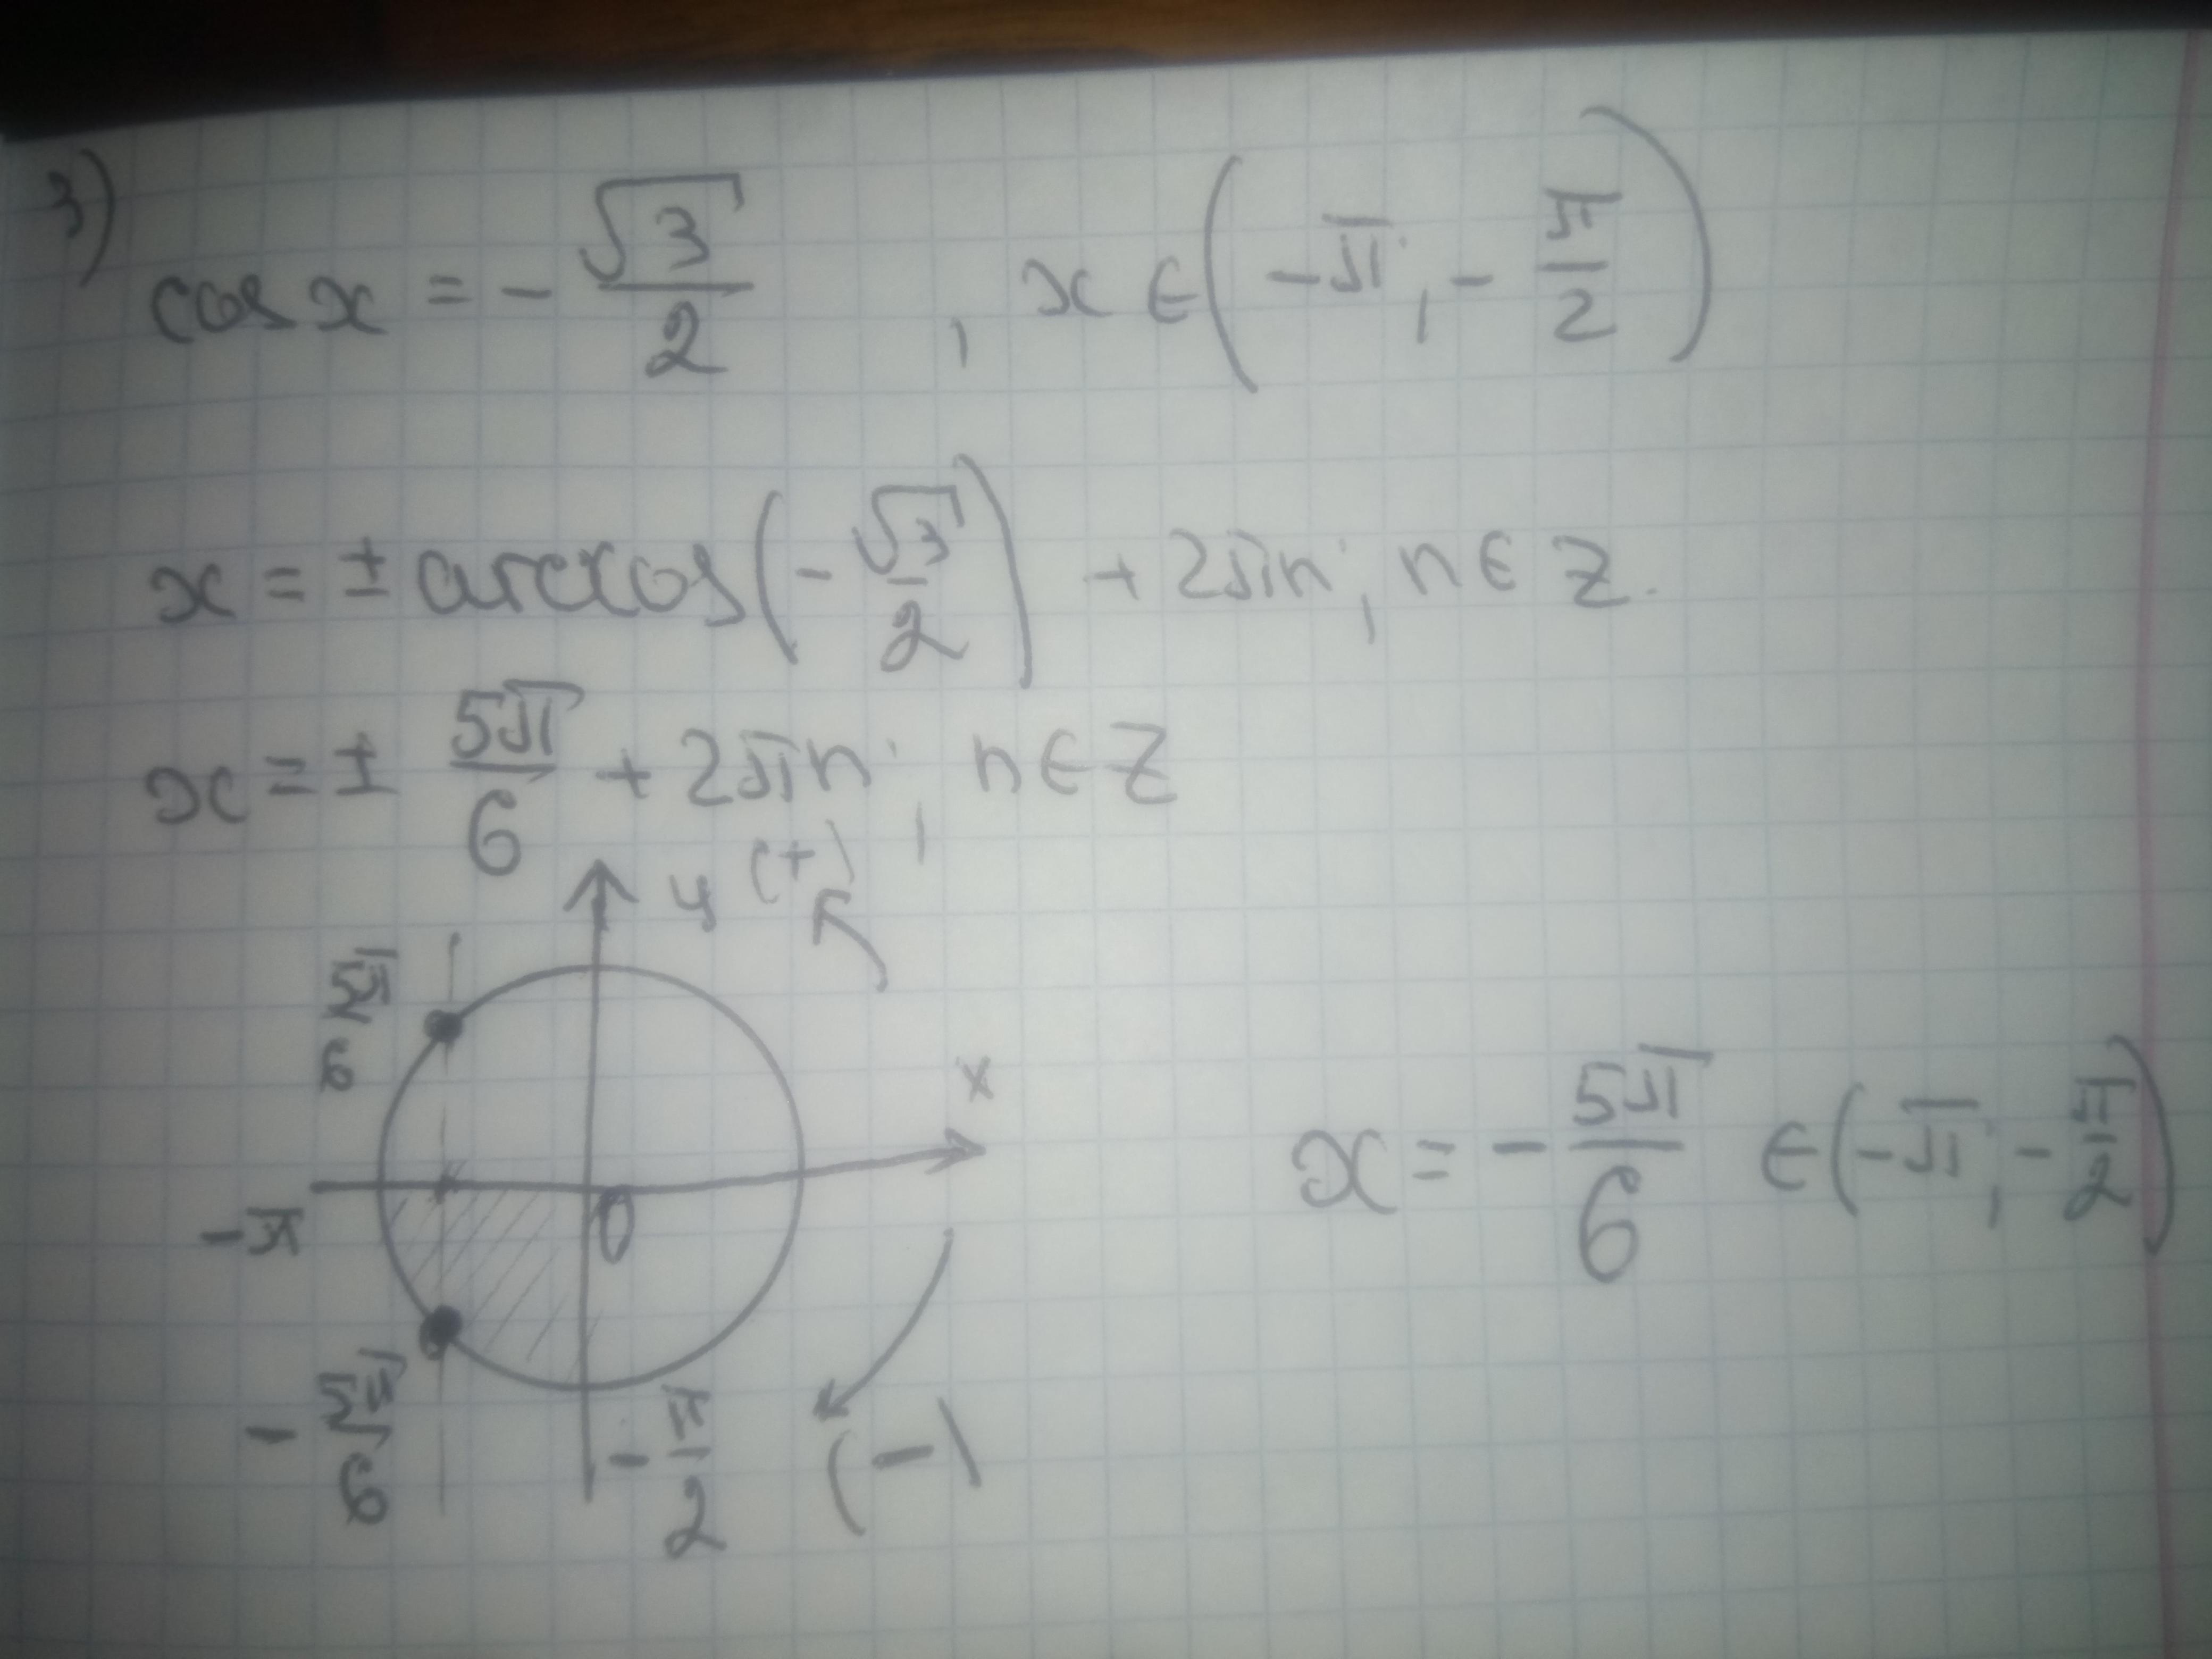 3)
cos x = - √3/2 , x ∈ (-π, - π/2)
x = ± arccos(- √3/2) + 2πn, n ∈ Z.
x = ± 5π/6 + 2πn, n ∈ Z
y (+)
5π/6
x
-π 0
x = - 5π/6 ∈ (-π, - π/2)
- 5π/6 - π/2 (-)